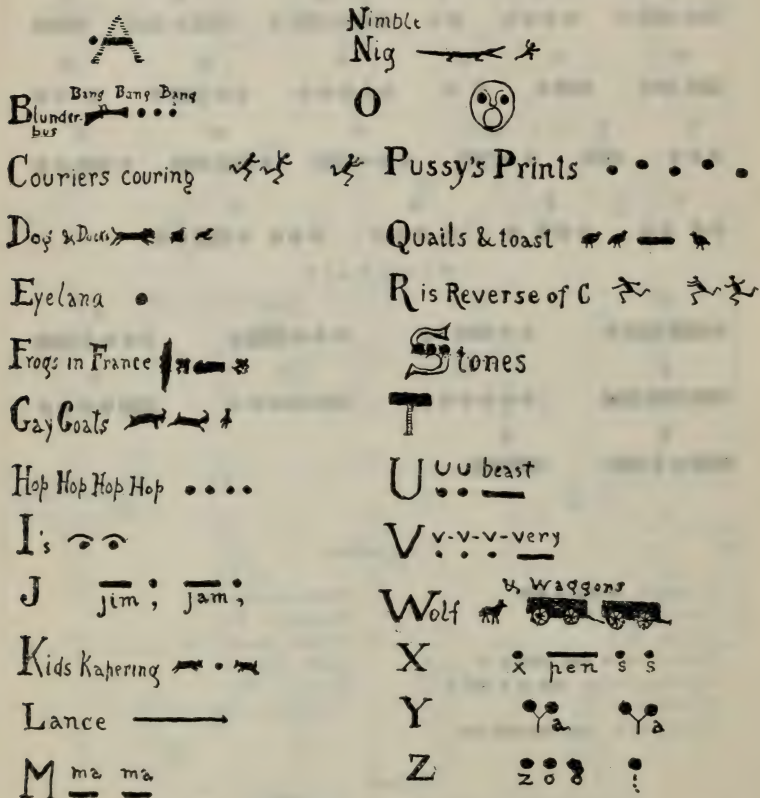 A
Bang Bang Bang
Blunder-
bus
Couriers couring
Dog & Ducks
Eyelana
Frogs in France
Gay Goats
Hop Hop Hop Hop
I's
J jim ; jam ;
Kids Kapering
Lance
M ma ma
Nimble
Nig
O
Pussy's Prints
Quails & toast
R is Reverse of C
Stones
T
U U U beast
V v-v-v-very
Wolf & Waggons
X x pen s s
Y Y a Y a
Z z o o :